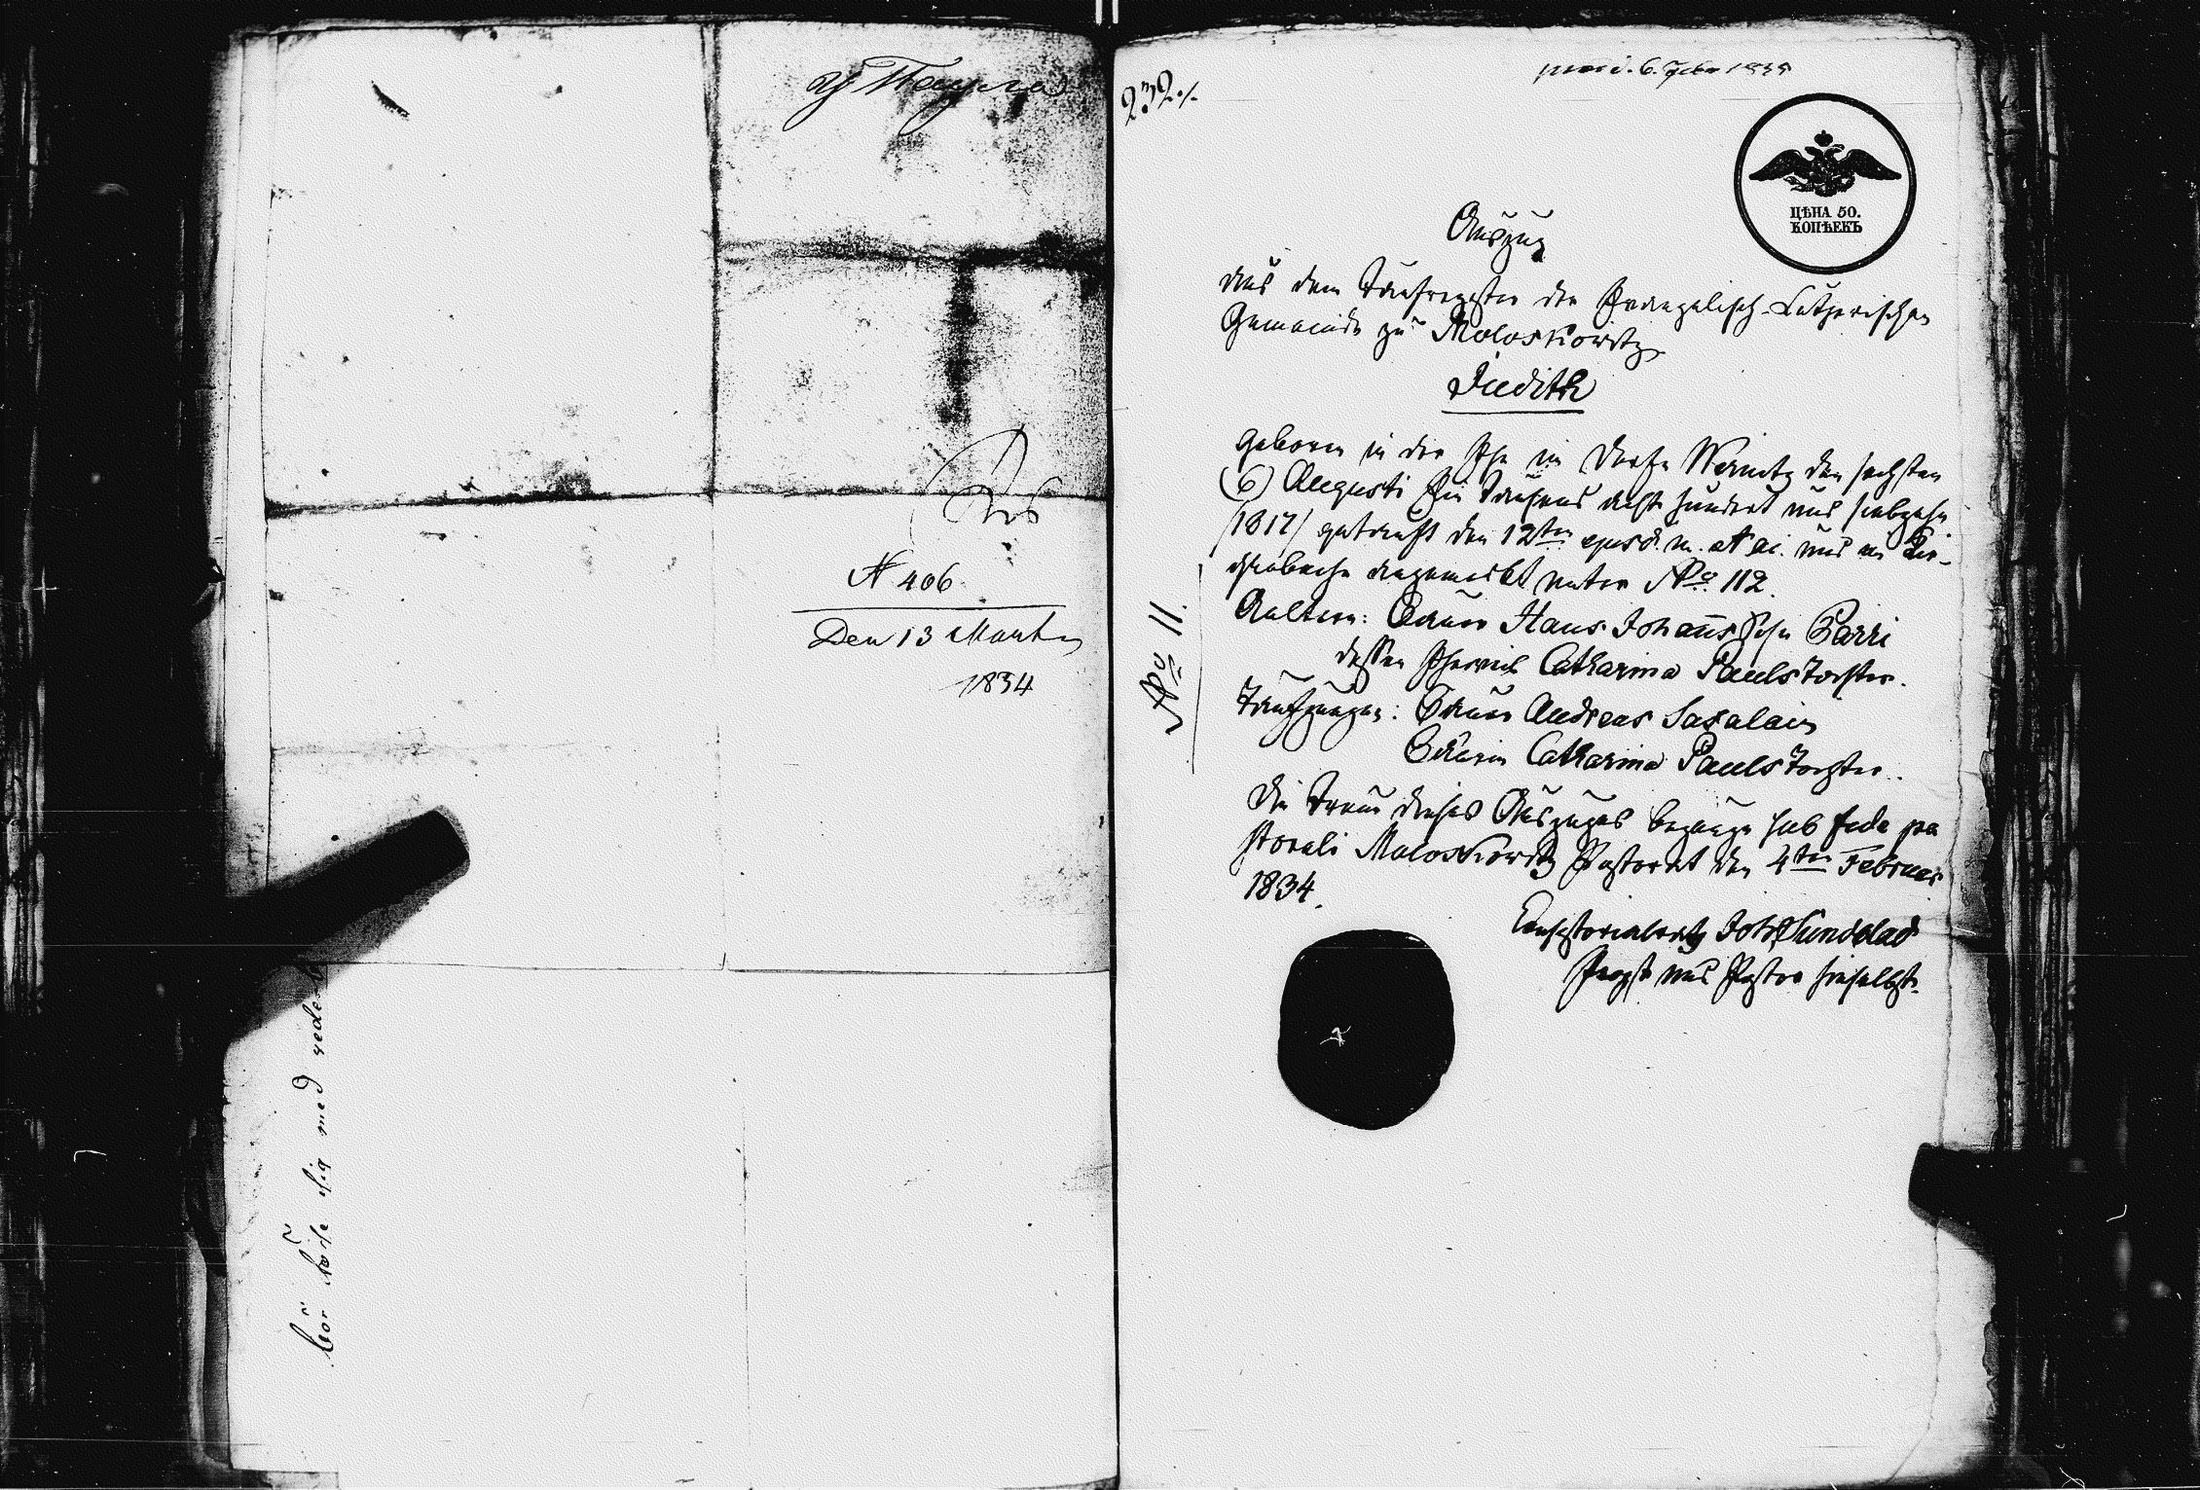 N 406
Den 13 Martz
1834
bör
sig med
232./.
praes d. 6. Febr 1834
ЦѢНА 50.
КОПѢЕКЪ
Auszug
aus dem Taufregister der Evangelisch-Lutherischen
Gemeinde zu Moloskowitz
Judith
geboren in der Ehe im Dorfe Wernitz den sechsten
(6) Augusti Ein Tausend acht hundert und siebzehn
/1817/ getauft den 12ten ejusd. m. et ai. und im Kir-
chenbuche angemerkt unter No 112.
No 11.
Aeltern: Bauer Hans Johanns Sohn Parri
dessen Eheweib Catharina Paulstochter.
Taufzeugen: Bauer Andreas Saxalain
Bäuerin Catharina Paulstochter.
Die Treue dieses Auszuges bezeuge sub fide pa
storali Moloskowitz Pastorat den 4ten Februar
1834.
Consistorialrath Joh. Sundblad
Propst und Pastor hieselbst.